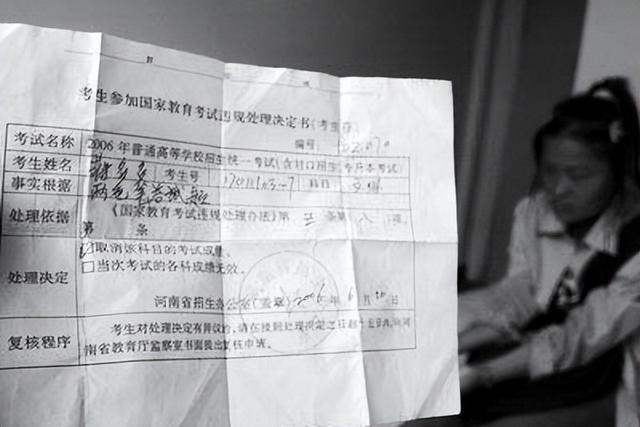 考生参加国家教育考试违规处理决定书(考生存)
编号:
考试名称 2006年普通高等学校招生统一考试(含对口招生、专升本考试)
考生姓名 考生号 科目 文综
事实根据 两包笔答试题
处理依据 《国家教育考试违规处理办法》第 五 条第 八 项、
第 条
处理决定 ☑取消该科目的考试成绩。
□当次考试的各科成绩无效。
河南省招生办公室(盖章) 2006年 6月 日
复核程序 考生对处理决定有异议的,请在接到处理决定之日起十五日内,向河
南省教育厅监察室书面提出复核申请。